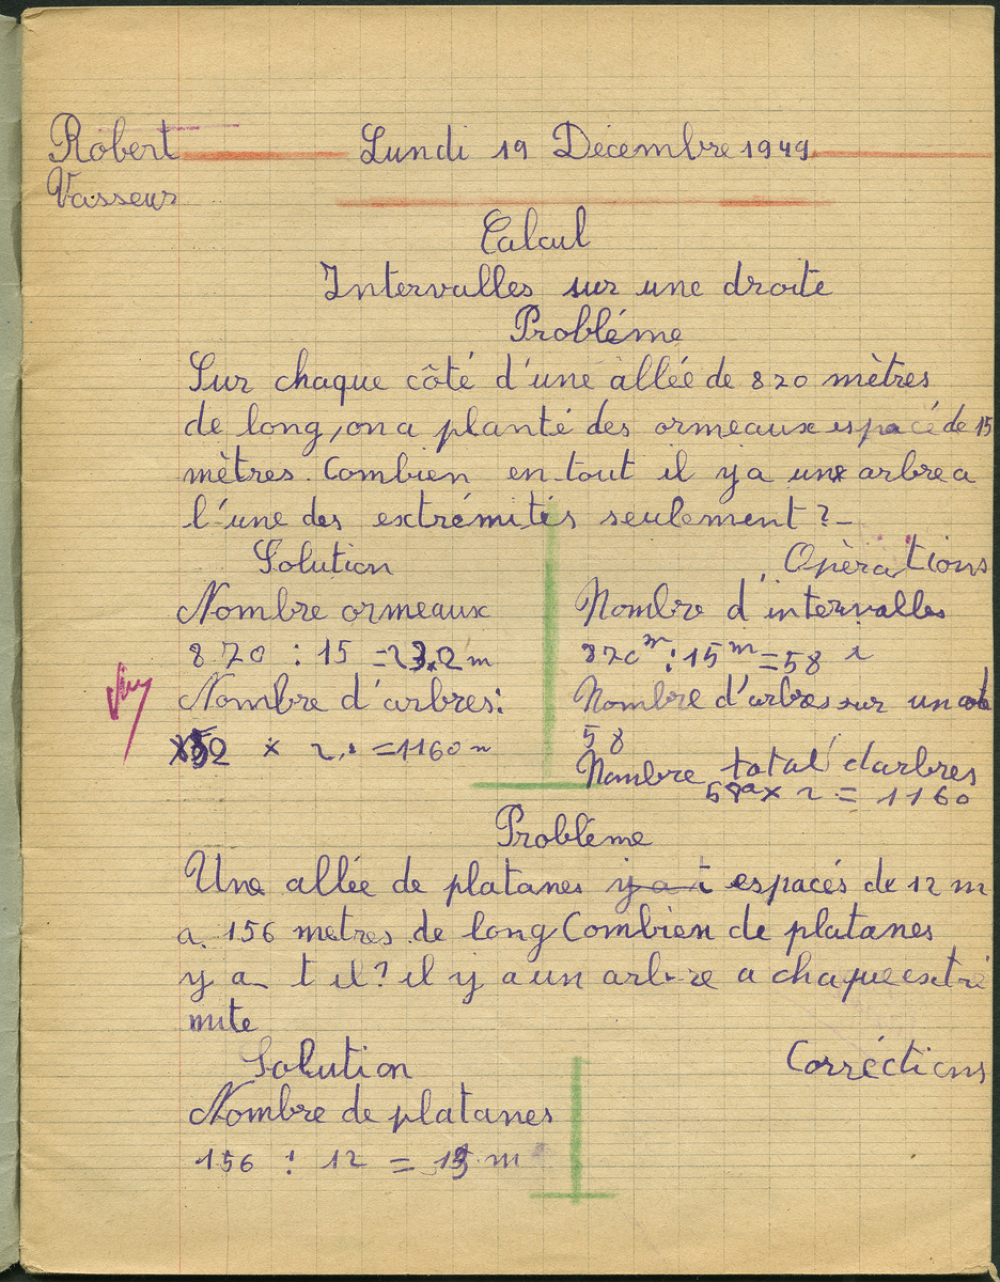 Robert
Vasseur
Lundi 19 Décembre 1949
Calcul
Intervalles sur une droite
Probléme
Sur chaque côté d'une allée de 870 mètres
de long, on a planté des ormeaux espacé de 15
mètres. Combien en tout il y a une arbre a
l'une des extrémités seulement ?
Solution
Nombre ormeaux
870 : 15 = m
Nombre d'arbres:
× 2 = 1160 m
Opèrations
Nombre d'intervalles
870m : 15m = 58 i
Nombre d'arbres sur un coté
58
Nombre total d'arbres
58a × 2 = 1160
Problême
Une allée de platanes y a t espacés de 12 m
a 156 metres de long Combien de platanes
y a t il ? il y a un arbre a chaque extré
mite
Solution
Nombre de platanes
156 : 12 = 13 m
Corréctions